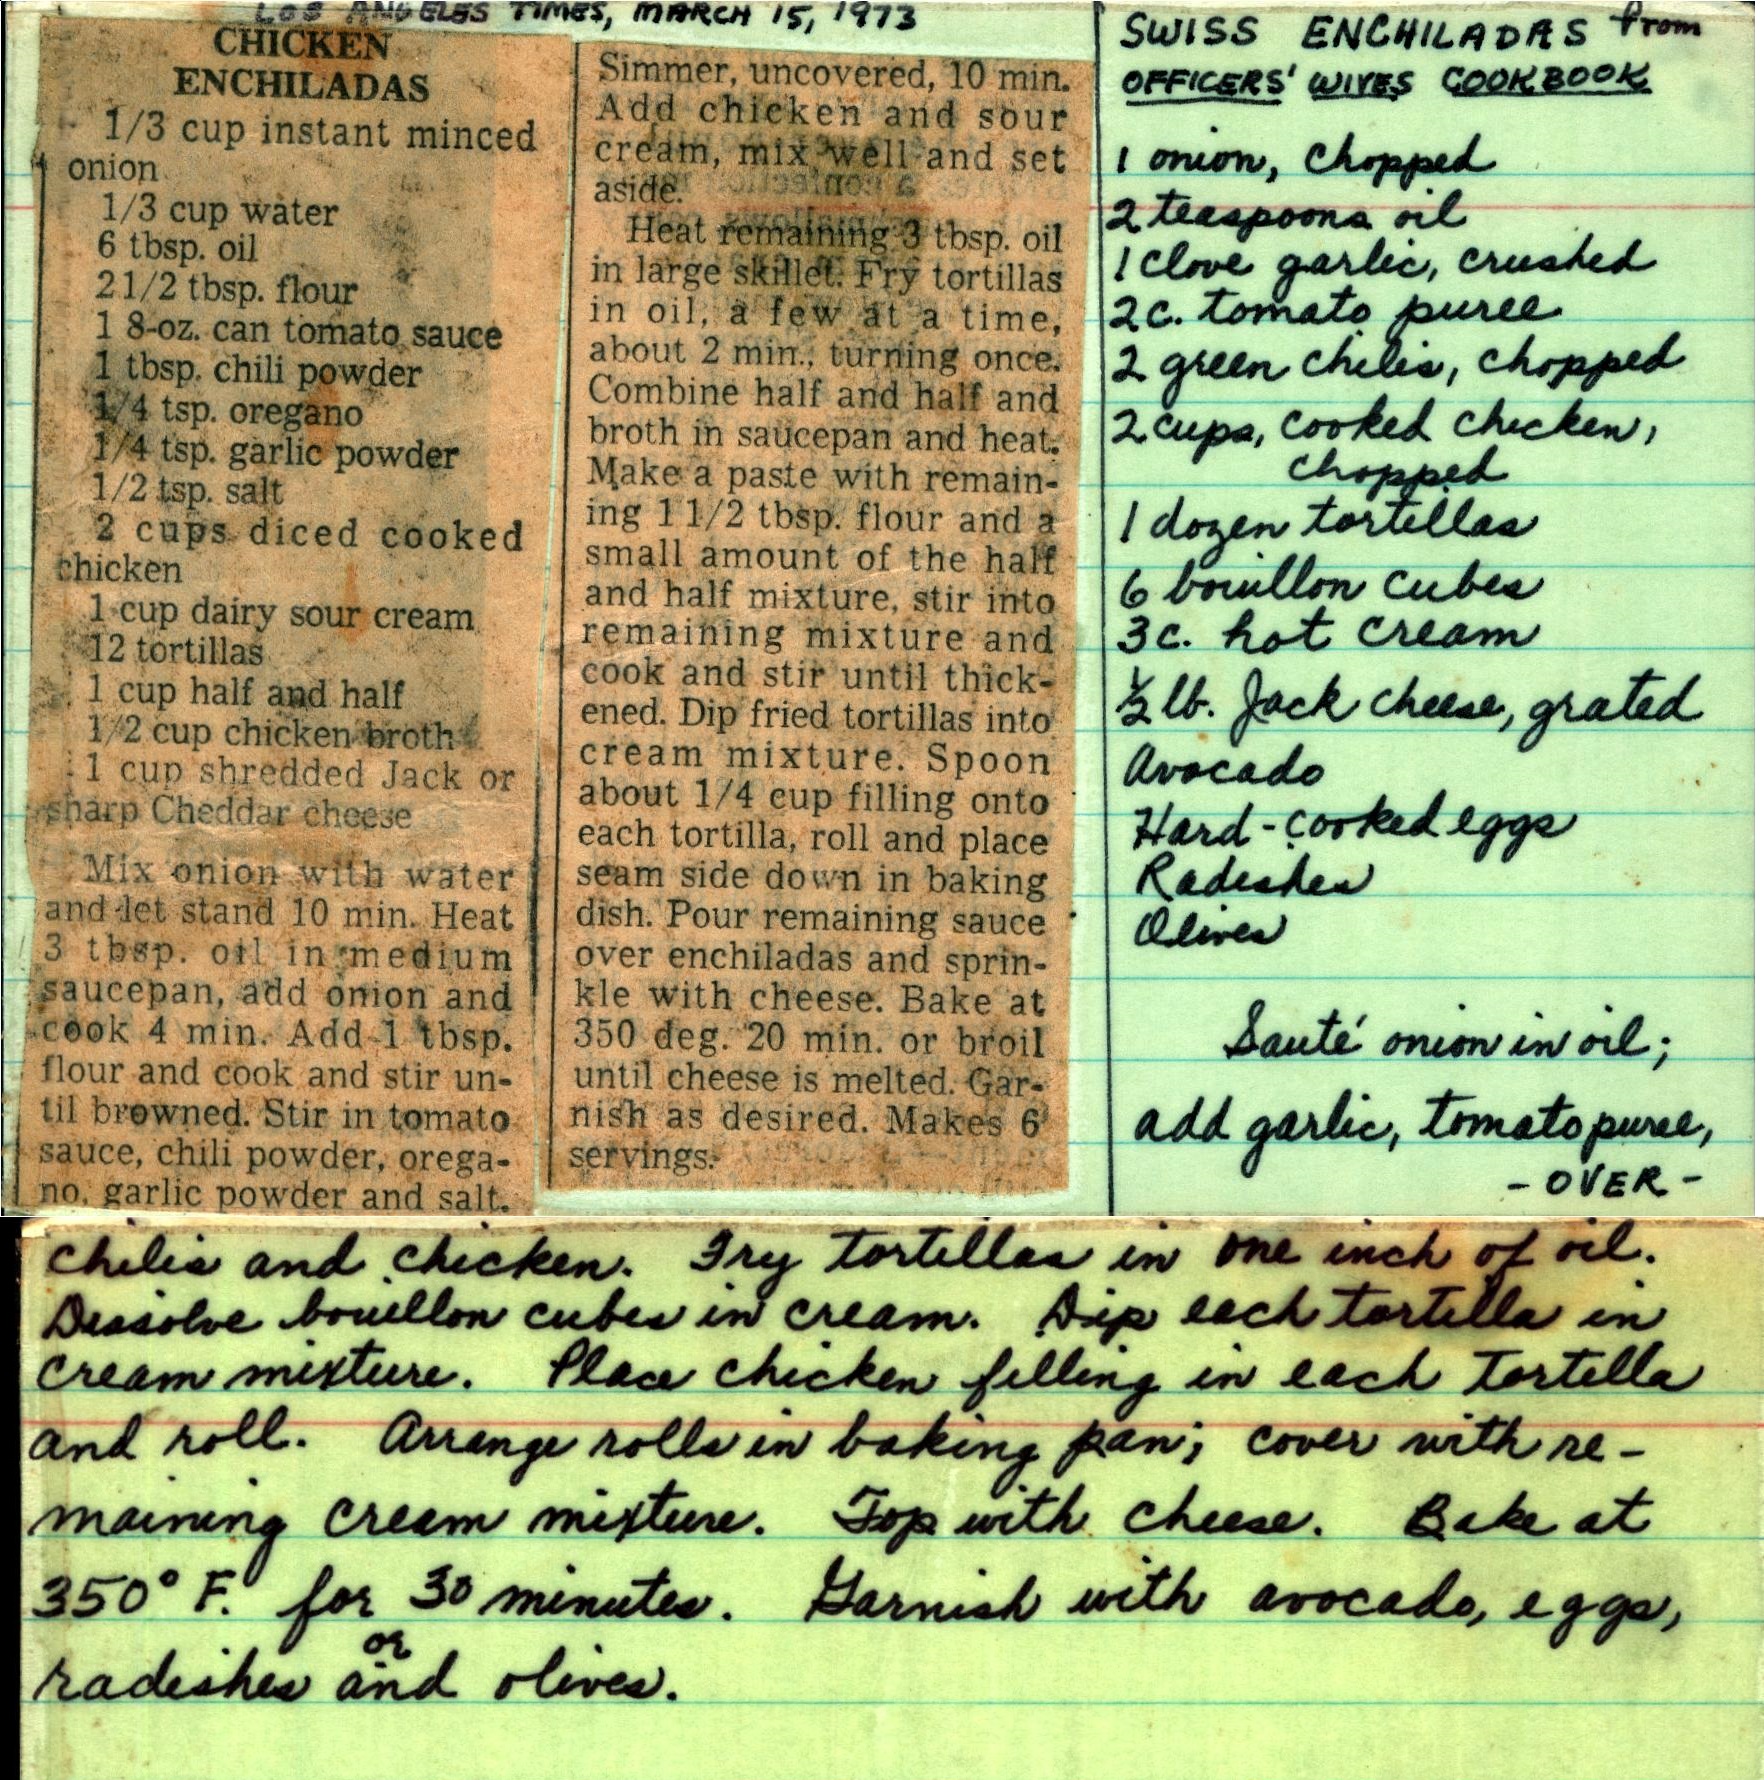 LOS ANGELES TIMES, MARCH 15, 1973
CHICKEN
ENCHILADAS
1/3 cup instant minced
onion
1/3 cup water
6 tbsp. oil
2 1/2 tbsp. flour
1 8-oz. can tomato sauce
1 tbsp. chili powder
1/4 tsp. oregano
1/4 tsp. garlic powder
1/2 tsp. salt
2 cups diced cooked
chicken
1 cup dairy sour cream
12 tortillas
1 cup half and half
1/2 cup chicken broth
1 cup shredded Jack or
sharp Cheddar cheese
Mix onion with water
and let stand 10 min. Heat
3 tbsp. oil in medium
saucepan, add onion and
cook 4 min. Add 1 tbsp.
flour and cook and stir un-
til browned. Stir in tomato
sauce, chili powder, orega-
no, garlic powder and salt.
Simmer, uncovered, 10 min.
Add chicken and sour
cream, mix well and set
aside.
Heat remaining 3 tbsp. oil
in large skillet. Fry tortillas
in oil, a few at a time,
about 2 min., turning once.
Combine half and half and
broth in saucepan and heat.
Make a paste with remain-
ing 1 1/2 tbsp. flour and a
small amount of the half
and half mixture, stir into
remaining mixture and
cook and stir until thick-
ened. Dip fried tortillas into
cream mixture. Spoon
about 1/4 cup filling onto
each tortilla, roll and place
seam side down in baking
dish. Pour remaining sauce
over enchiladas and sprin-
kle with cheese. Bake at
350 deg. 20 min. or broil
until cheese is melted. Gar-
nish as desired. Makes 6
servings.
SWISS ENCHILADAS from
OFFICERS' WIVES COOKBOOK
1 onion, chopped
2 teaspoons oil
1 clove garlic, crushed
2 c. tomato puree
2 green chilis, chopped
2 cups, cooked chicken,
chopped
1 dozen tortillas
6 bouillon cubes
3 c. hot cream
½ lb. Jack cheese, grated
Avocado
Hard-cooked eggs
Radishes
Olives
Sauté onion in oil;
add garlic, tomato puree,
- OVER -
chilis and chicken. Fry tortillas in one inch of oil.
Dissolve bouillon cubes in cream. Dip each tortilla in
cream mixture. Place chicken filling in each tortilla
and roll. Arrange rolls in baking pan; cover with re-
maining cream mixture. Top with cheese. Bake at
350° F. for 30 minutes. Garnish with avocado, eggs,
or
radishes and olives.